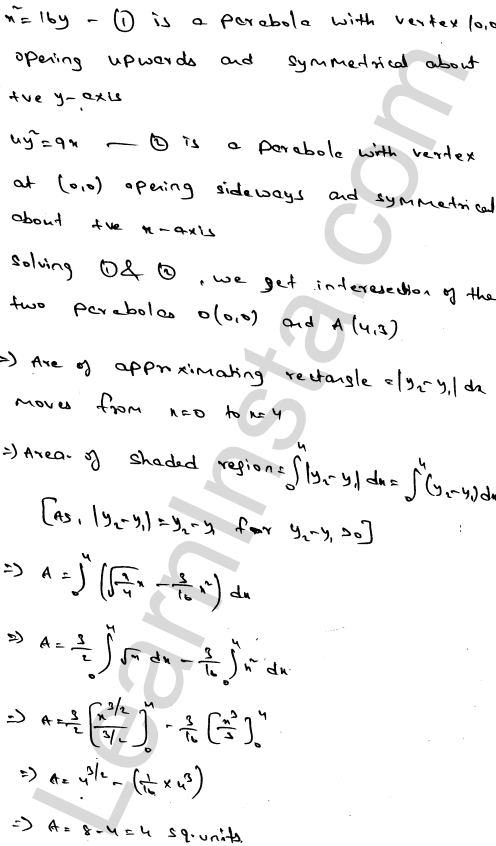 x² = 16y - ① is a parabola with vertex (0,0
opening upwards and symmetrical about
+ve y-axis
4y² = 9x — ② is a parabola with vertex
at (0,0) opening sideways and symmetrical
about +ve x-axis
Solving ① & ②, we get interesection of the
two parabolas O(0,0) and A(4,3)
⇒) Are of approximating rectangle = |y₂-y₁| dx
moves from x=0 to x=4
⇒) Area of shaded region = ∫₀⁴ |y₂-y₁| dx = ∫₀⁴ (y₂-y₁) dx
[As, |y₂-y₁| = y₂-y₁ for y₂-y₁ >0]
⇒) A = ∫₀⁴ (√(9/4 x) - 3/16 x²) dx
⇒) A = 3/2 ∫₀⁴ √x dx - 3/16 ∫₀⁴ x² dx
⇒) A = 3/2 [x^(3/2) / (3/2)]₀⁴ - 3/16 [x³/3]₀⁴
⇒) A = 4^(3/2) - (1/16 × 4³)
⇒) A = 8-4 = 4 sq.units
LearnInsta.com